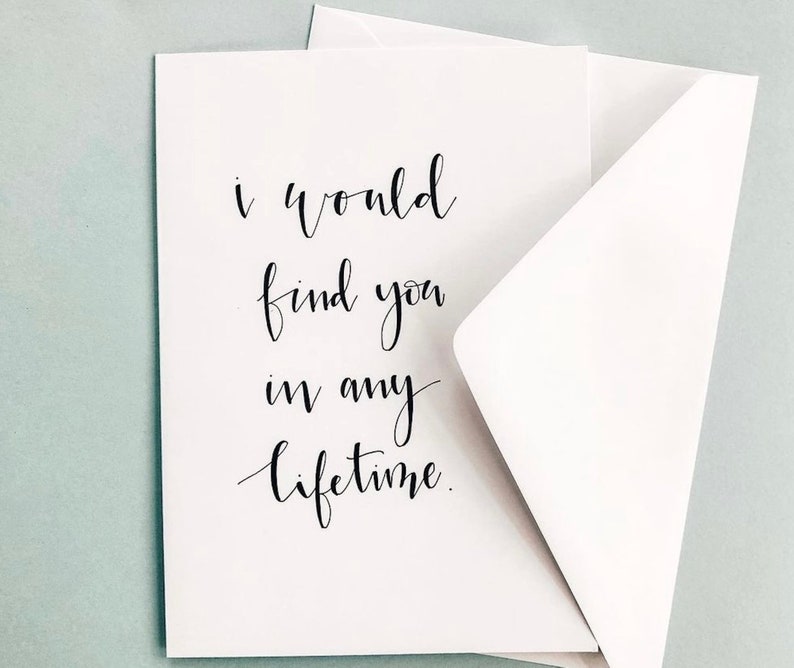 i would
find you
in any
lifetime.